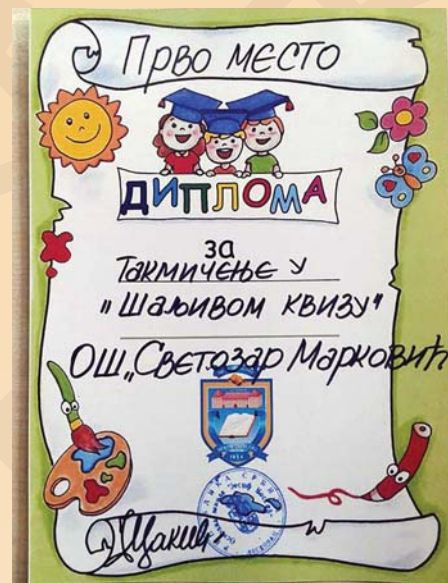 Прво место
ДИПЛОМА
за
Такмичење у
„Шаљивом квизу“
ОШ „Светозар Марковић